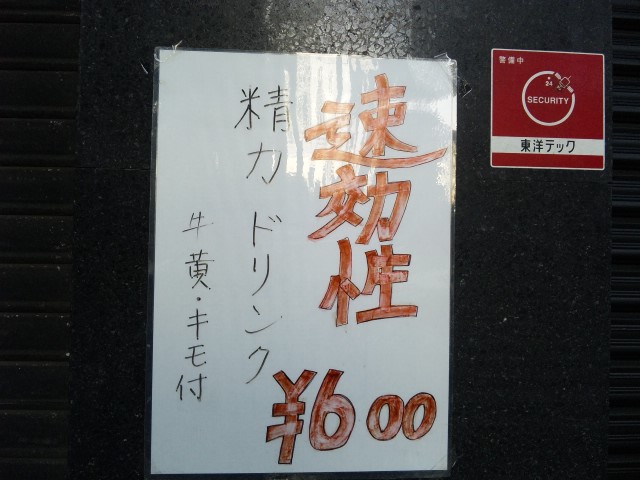 速効性
精力ドリンク
牛黄・キモ付
¥600
警備中
24
SECURITY
東洋テック